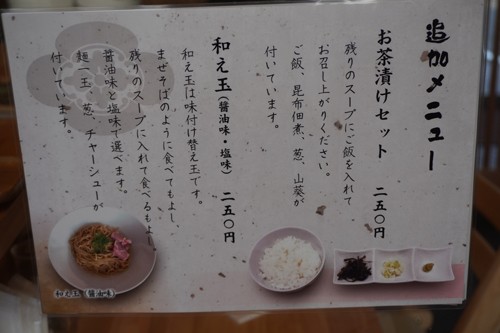 追加メニュー
お茶漬けセット 二五〇円
残りのスープにご飯を入れて
お召し上がりください。
ご飯、昆布佃煮、葱、山葵が
付いています。
和え玉（醤油味・塩味） 二五〇円
和え玉は味付け替え玉です。
まぜそばのように食べてもよし、
残りのスープに入れて食べるもよし。
醤油味と塩味で選べます。
麺一玉、葱、チャーシューが
付いています。
和え玉（醤油味）